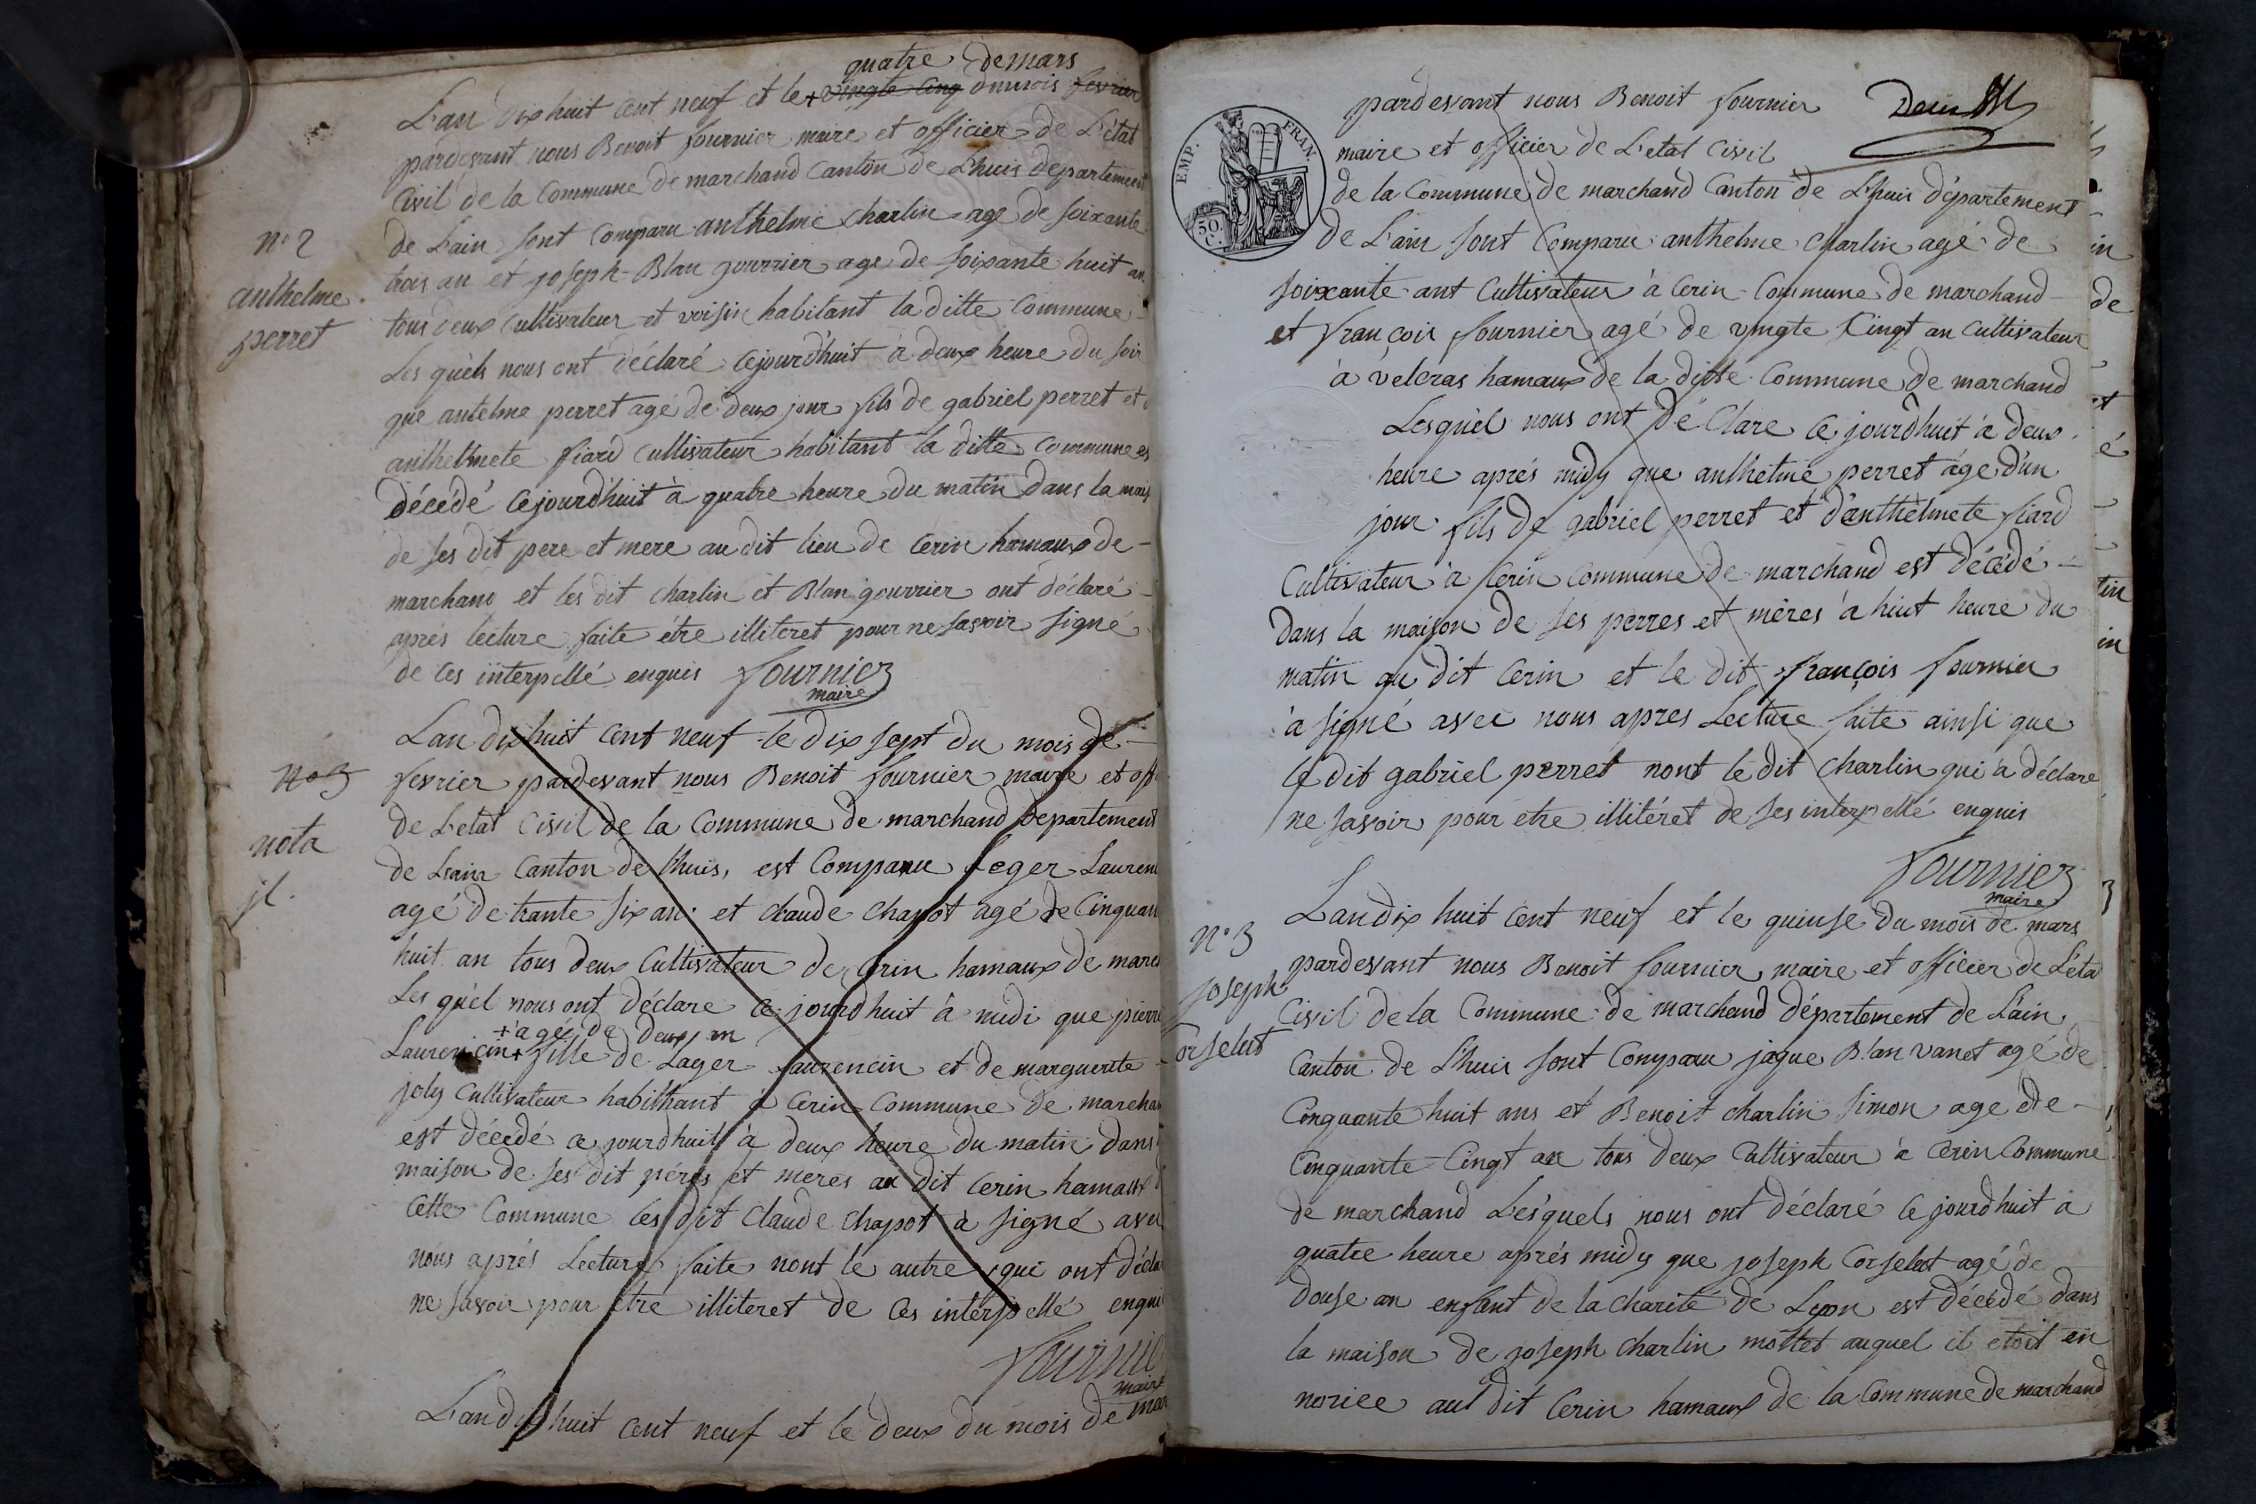 quatre de mars
L'an dix huit cent neuf et le + vingte cinq du mois fevrier
pardevant nous Benoit fournier maire et officier de L'état
Civil de la Commune de marchand Canton de Lhuis departement
de L'ain sont Comparu anthelme charlin age de soixante
trois an et joseph Blan gourrier age de soixante huit an
tous deux Cultivateur et voisin habitant la ditte Commune
Les quels nous ont déclaré cejourd'huit à deux heure du soir
que antelme perret agé de deux jour fils de gabriel perret et
anthelmete fiard Cultivateur habitant la ditte Commune es
décédé cejourd'huit à quatre heure du matin dans la mais
de ses dit pere et mere au dit lieu de Cerin hamaux de
marchand et les dit charlin et Blan gourrier ont déclaré
apres lecture faite étre illiteret pour ne savoir signé
de ces interpellé enquis fournier
maire
n° 2
anthelme
perret
L'an dix huit cent neuf le dix sept du mois de
fevrier pardevant nous Benoit fournier maire et off
de L'etat Civil de la Commune de marchand Departement
de L'ain Canton de Lhuis, est Comparu Leger Lauren
agé de trante six an et claude chapot agé de Cinquan
huit an tous deux Cultivateur de Cerin hamaux de march
Les quel nous ont déclare ce jourdhuit à midi que pierre
+ agée de deux an
Laurencin + fille de Lager Laurencin et de marguerite
joly Cultivateur habithant à Cerin Commune de marchan
est décédé ce jourdhuit à deux heure du matin dans
maison de ses dit péres et meres au dit Cerin hamaux d
Cette Commune les dit Claude chapot à signé avec
nous aprés Lecture faite nont le autre qui ont décla
ne savoir pour etre illiteret de ces interpellé enqui
fournie
maire
no 3
nota
jl.
L'an dix huit cent neuf et le deux du mois de mar
EMP. FRAN.
50
C.
pardevant nous Benoit fournier
maire et officier de L'etat Civil
de la Commune de marchand Canton de Lhuis département
de L'ain sont Comparu anthelme charlin agé de
soixante ant Cultivateur à Cerin Commune de marchand
et françois fournier agé de vingte Cingt an Cultivateur
à velcras hamaux de la ditte Commune de marchand
Lesquel nous ont dé Clare ce jourdhuit à deux
heure aprés midy que anthelme perret age d'un
jour fils de gabriel perret et d'anthelmete fiard
Cultivateur à Cerin Commune de marchand est décédé
dans la maison de ses perres et mères à huit heure du
matin au dit Cerin et le dit françois fournier
à signé avec nous apres Lecture faite ainsi que
le dit gabriel perret nont le dit charlin qui à déclare
ne savoir pour etre illitéret de ses interpellé enquis
fournier
maire
n° 3
joseph
Corselut
L'an dix huit cent neuf et le quinse du mois de mars
pardevant nous Benoit fournier maire et officier de L'éta
Civil de la Commune de marchand département de L'ain
Canton de Lhuis sont Comparu jaque Blan vanet agé de
Cinquante huit ans et Benoit charlin Simon age de
Cinquante Cingt an tous deux Cultivateur à Cerin Commune
de marchand Lesquels nous ont déclaré ce jourdhuit à
quatre heure aprés midy que joseph Corselut agé de
douse an enfant de la Charité de Lyon est décédé dans
la maison de joseph charlin mottet auquel il etoit en
norice au dit Cerin hamaux de la Commune de marchand